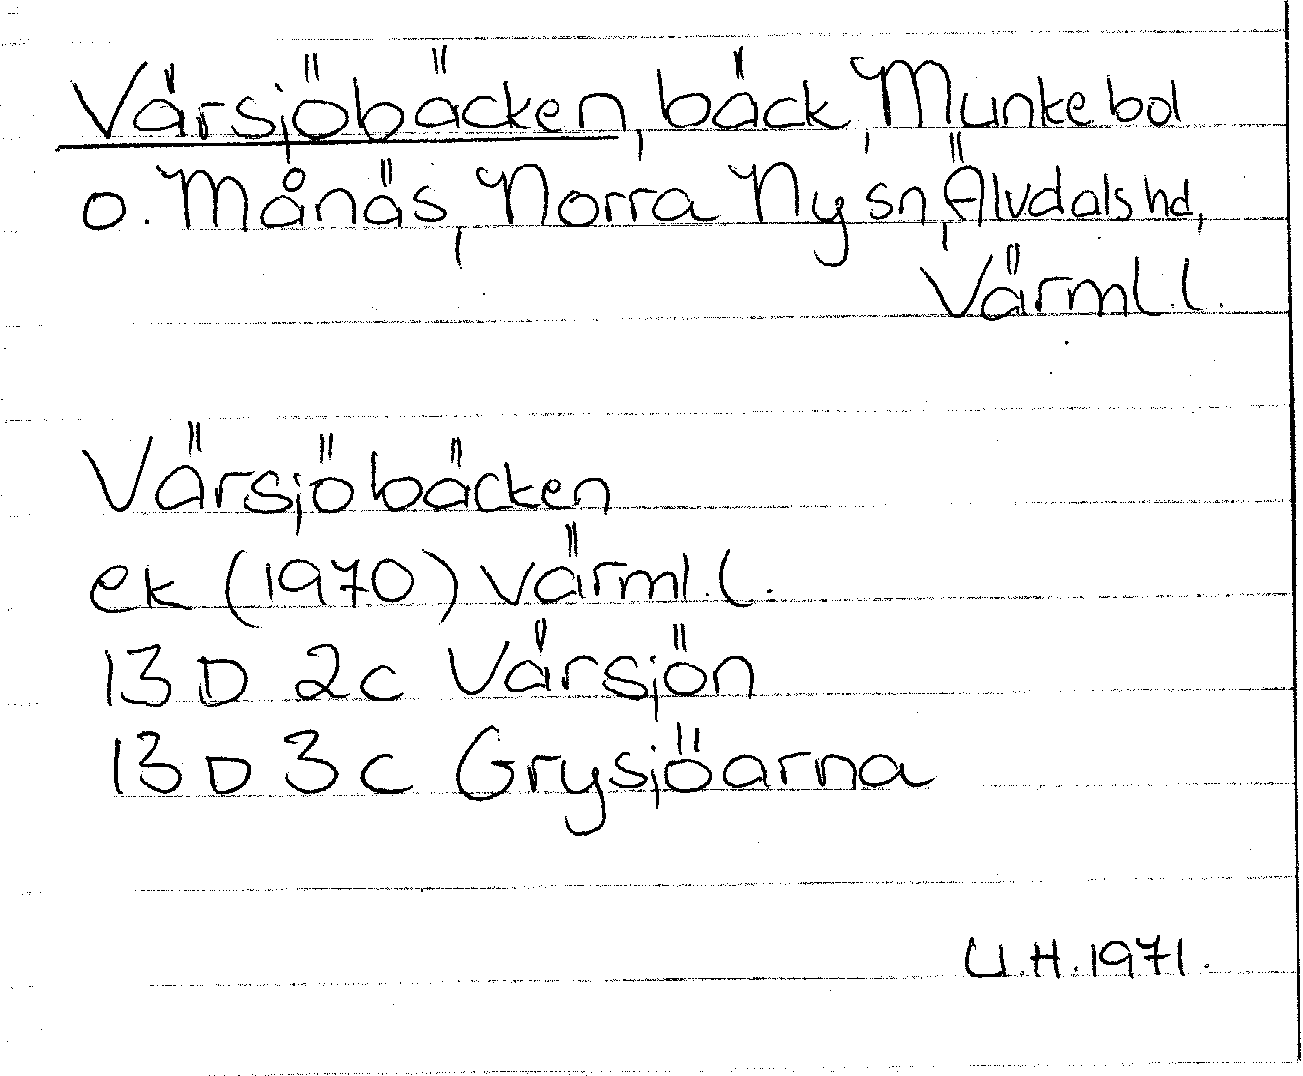 Värsjöbäcken, bäck, Munkebol
o. Månäs, Norra Ny sn, Älvdals hd,
Värml. l.
Värsjöbäcken
ek (1970) Värml. l.
13 D 2c Värsjön
13 D 3c Grysjöarna
U.H. 1971.